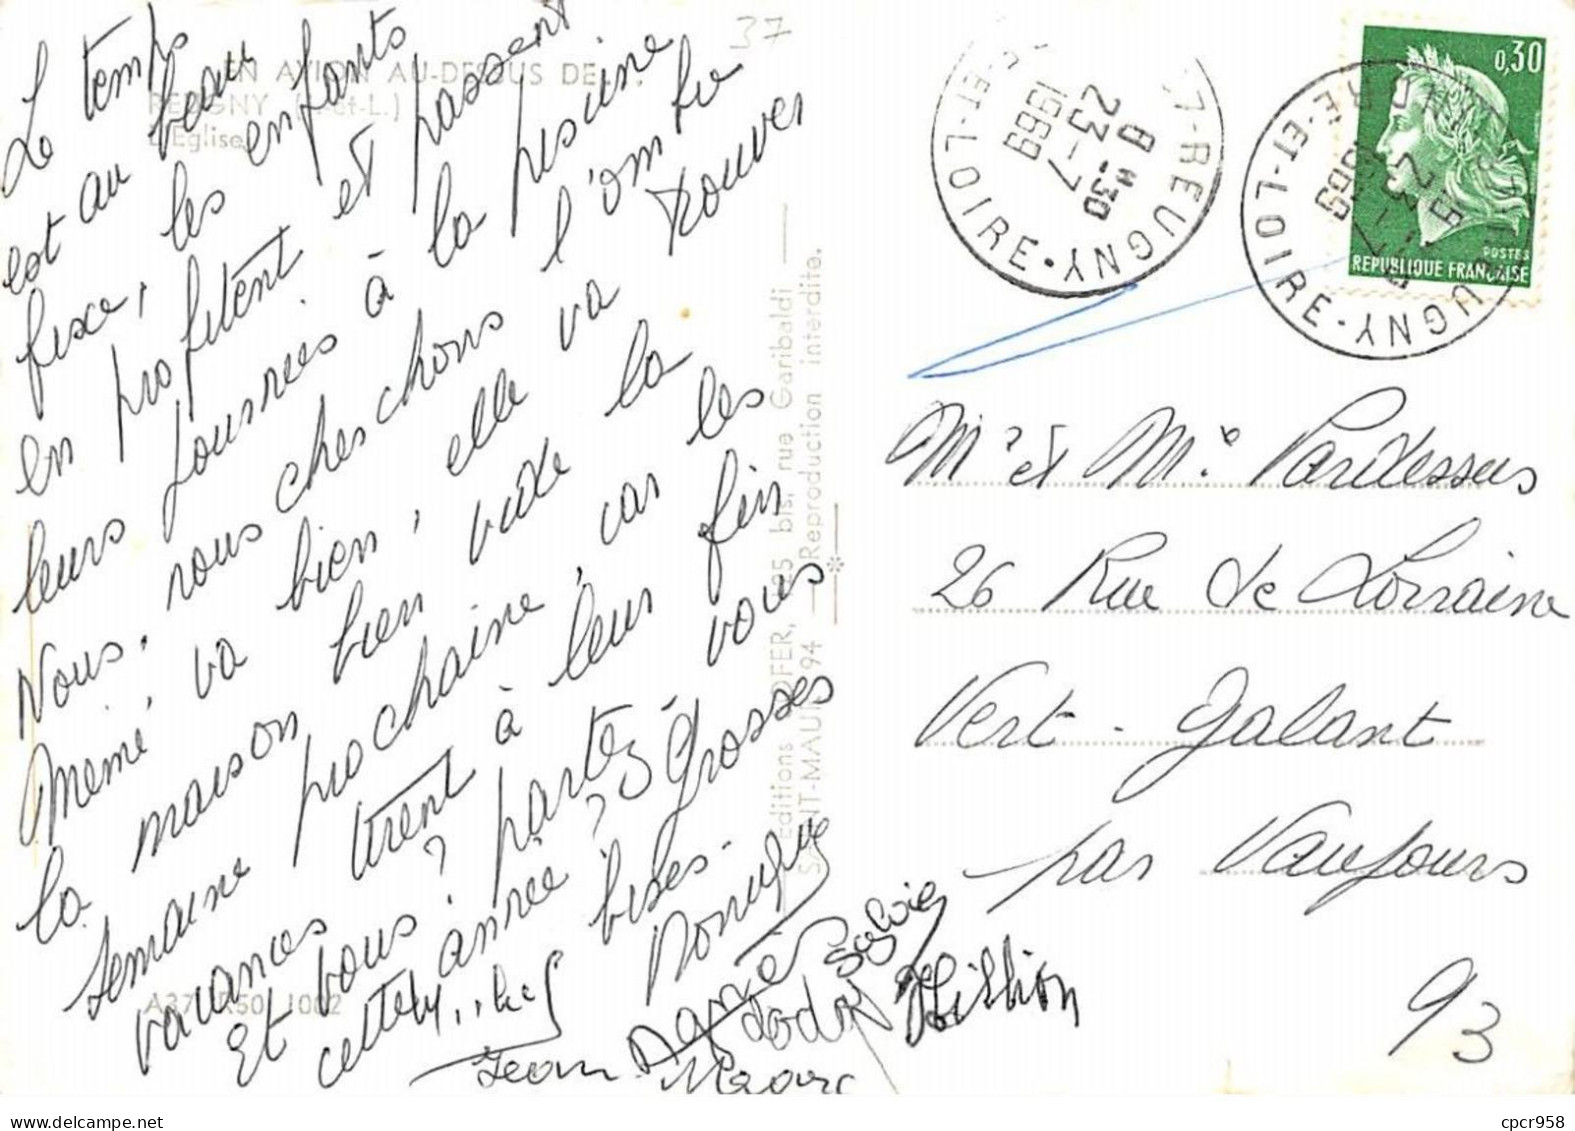 Le temps
est au beau
fixe, les enfants
en profitent et passent
leurs journées à la piscine
Nous, nous cherchons l'ombre
Mémé va bien, elle va trouver
la maison bien vide la
semaine prochaine, car les
vacances tirent à leur fin
Et vous ? partez-vous
cette année ? Grosses
bises.
Sylvie
Jean Marc
EN AVION AU-DESSUS DE...
REUGNY (I.-et-L.)
L'Eglise
37
A37 R50 1002
Editions SOFER, 125 bis, rue Garibaldi
SAINT-MAUR 94 — Reproduction interdite.
37-REUGNY
INDRE-ET-LOIRE
8 H 30
23-7
1969
0,30
POSTES
REPUBLIQUE FRANÇAISE
Mr et Me Pardessus
26 Rue de Lorraine
Vert-Galant
par Vaujours
93
cpcr958